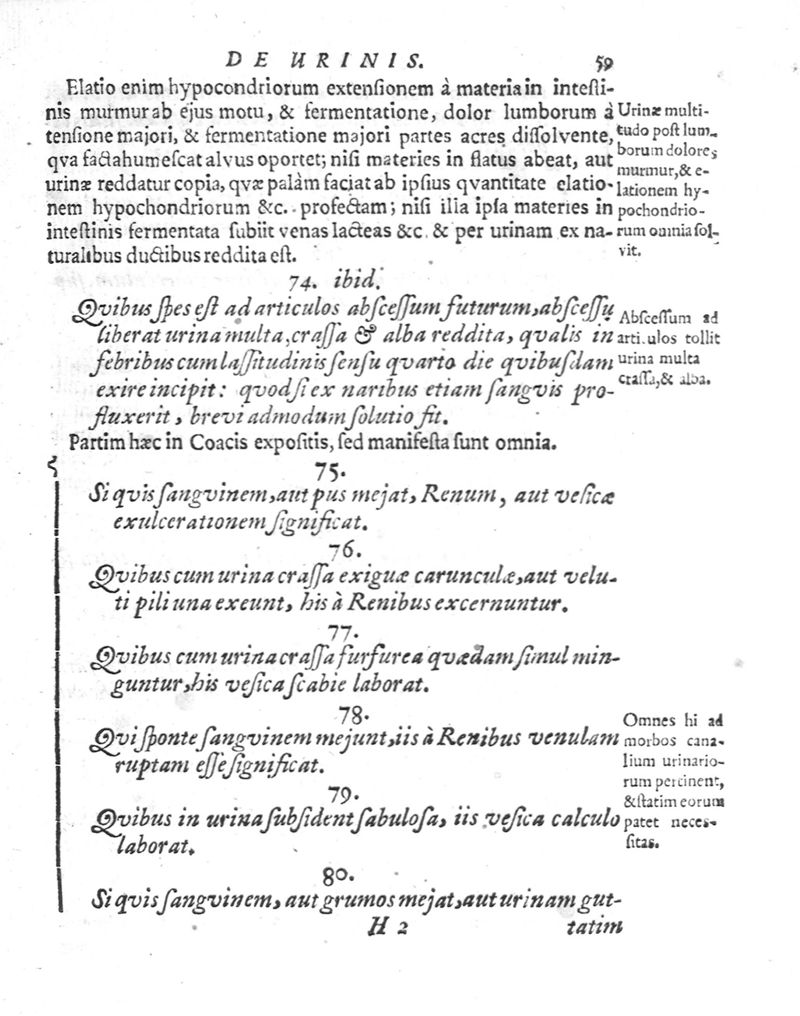 DE URINIS. 59
Elatio enim hypocondriorum extensionem à materia in intesti-
nis murmur ab ejus motu, & fermentatione, dolor lumborum à
tensione majori, & fermentatione majori partes acres dissolvente,
qva facta humescat alvus oportet; nisi materies in flatus abeat, aut
urinæ reddatur copia, qvæ palàm faciat ab ipsius qvantitate elatio-
nem hypochondriorum &c. profectam; nisi illa ipsa materies in
intestinis fermentata subiit venas lacteas &c. & per urinam ex na-
turalibus ductibus reddita est.
Urinæ multi-
tudo post lum-
borum dolores
murmur, & e-
lationem hy-
pochondrio-
rum omnia sol-
vit.
74. ibid.
Qvibus spes est ad articulos abscessum futurum, abscessu
liberat urina multa, crassa & alba reddita, qvalis in
febribus cum lassitudinis sensu qvarto die quibusdam
exire incipit: qvodsi ex naribus etiam sangvis pro-
fluxerit, brevi admodum solutio fit.
Abscessum ad
articulos tollit
urina multa
crassa, & alba.
Partim hæc in Coacis expositis, sed manifesta sunt omnia.
75.
Si qvis sangvinem, aut pus mejat, Renum, aut vesicæ
exulcerationem significat.
76.
Qvibus cum urina crassa exiguæ carunculæ, aut velu-
ti pili una exeunt, his à Renibus excernuntur.
77.
Qvibus cum urina crassa furfurea qvædam simul min-
guntur, his vesica scabie laborat.
78.
Qvi sponte sangvinem mejunt, iis à Renibus venulam
ruptam esse significat.
79.
Qvibus in urina subsident sabulosa, iis vesica calculo
laborat.
Omnes hi ad
morbos cana-
lium urinario-
rum percinent,
& statim eorum
patet neces-
sitas.
80.
Si qvis sangvinem, aut grumos mejat, aut urinam gut-
H 2 tatim